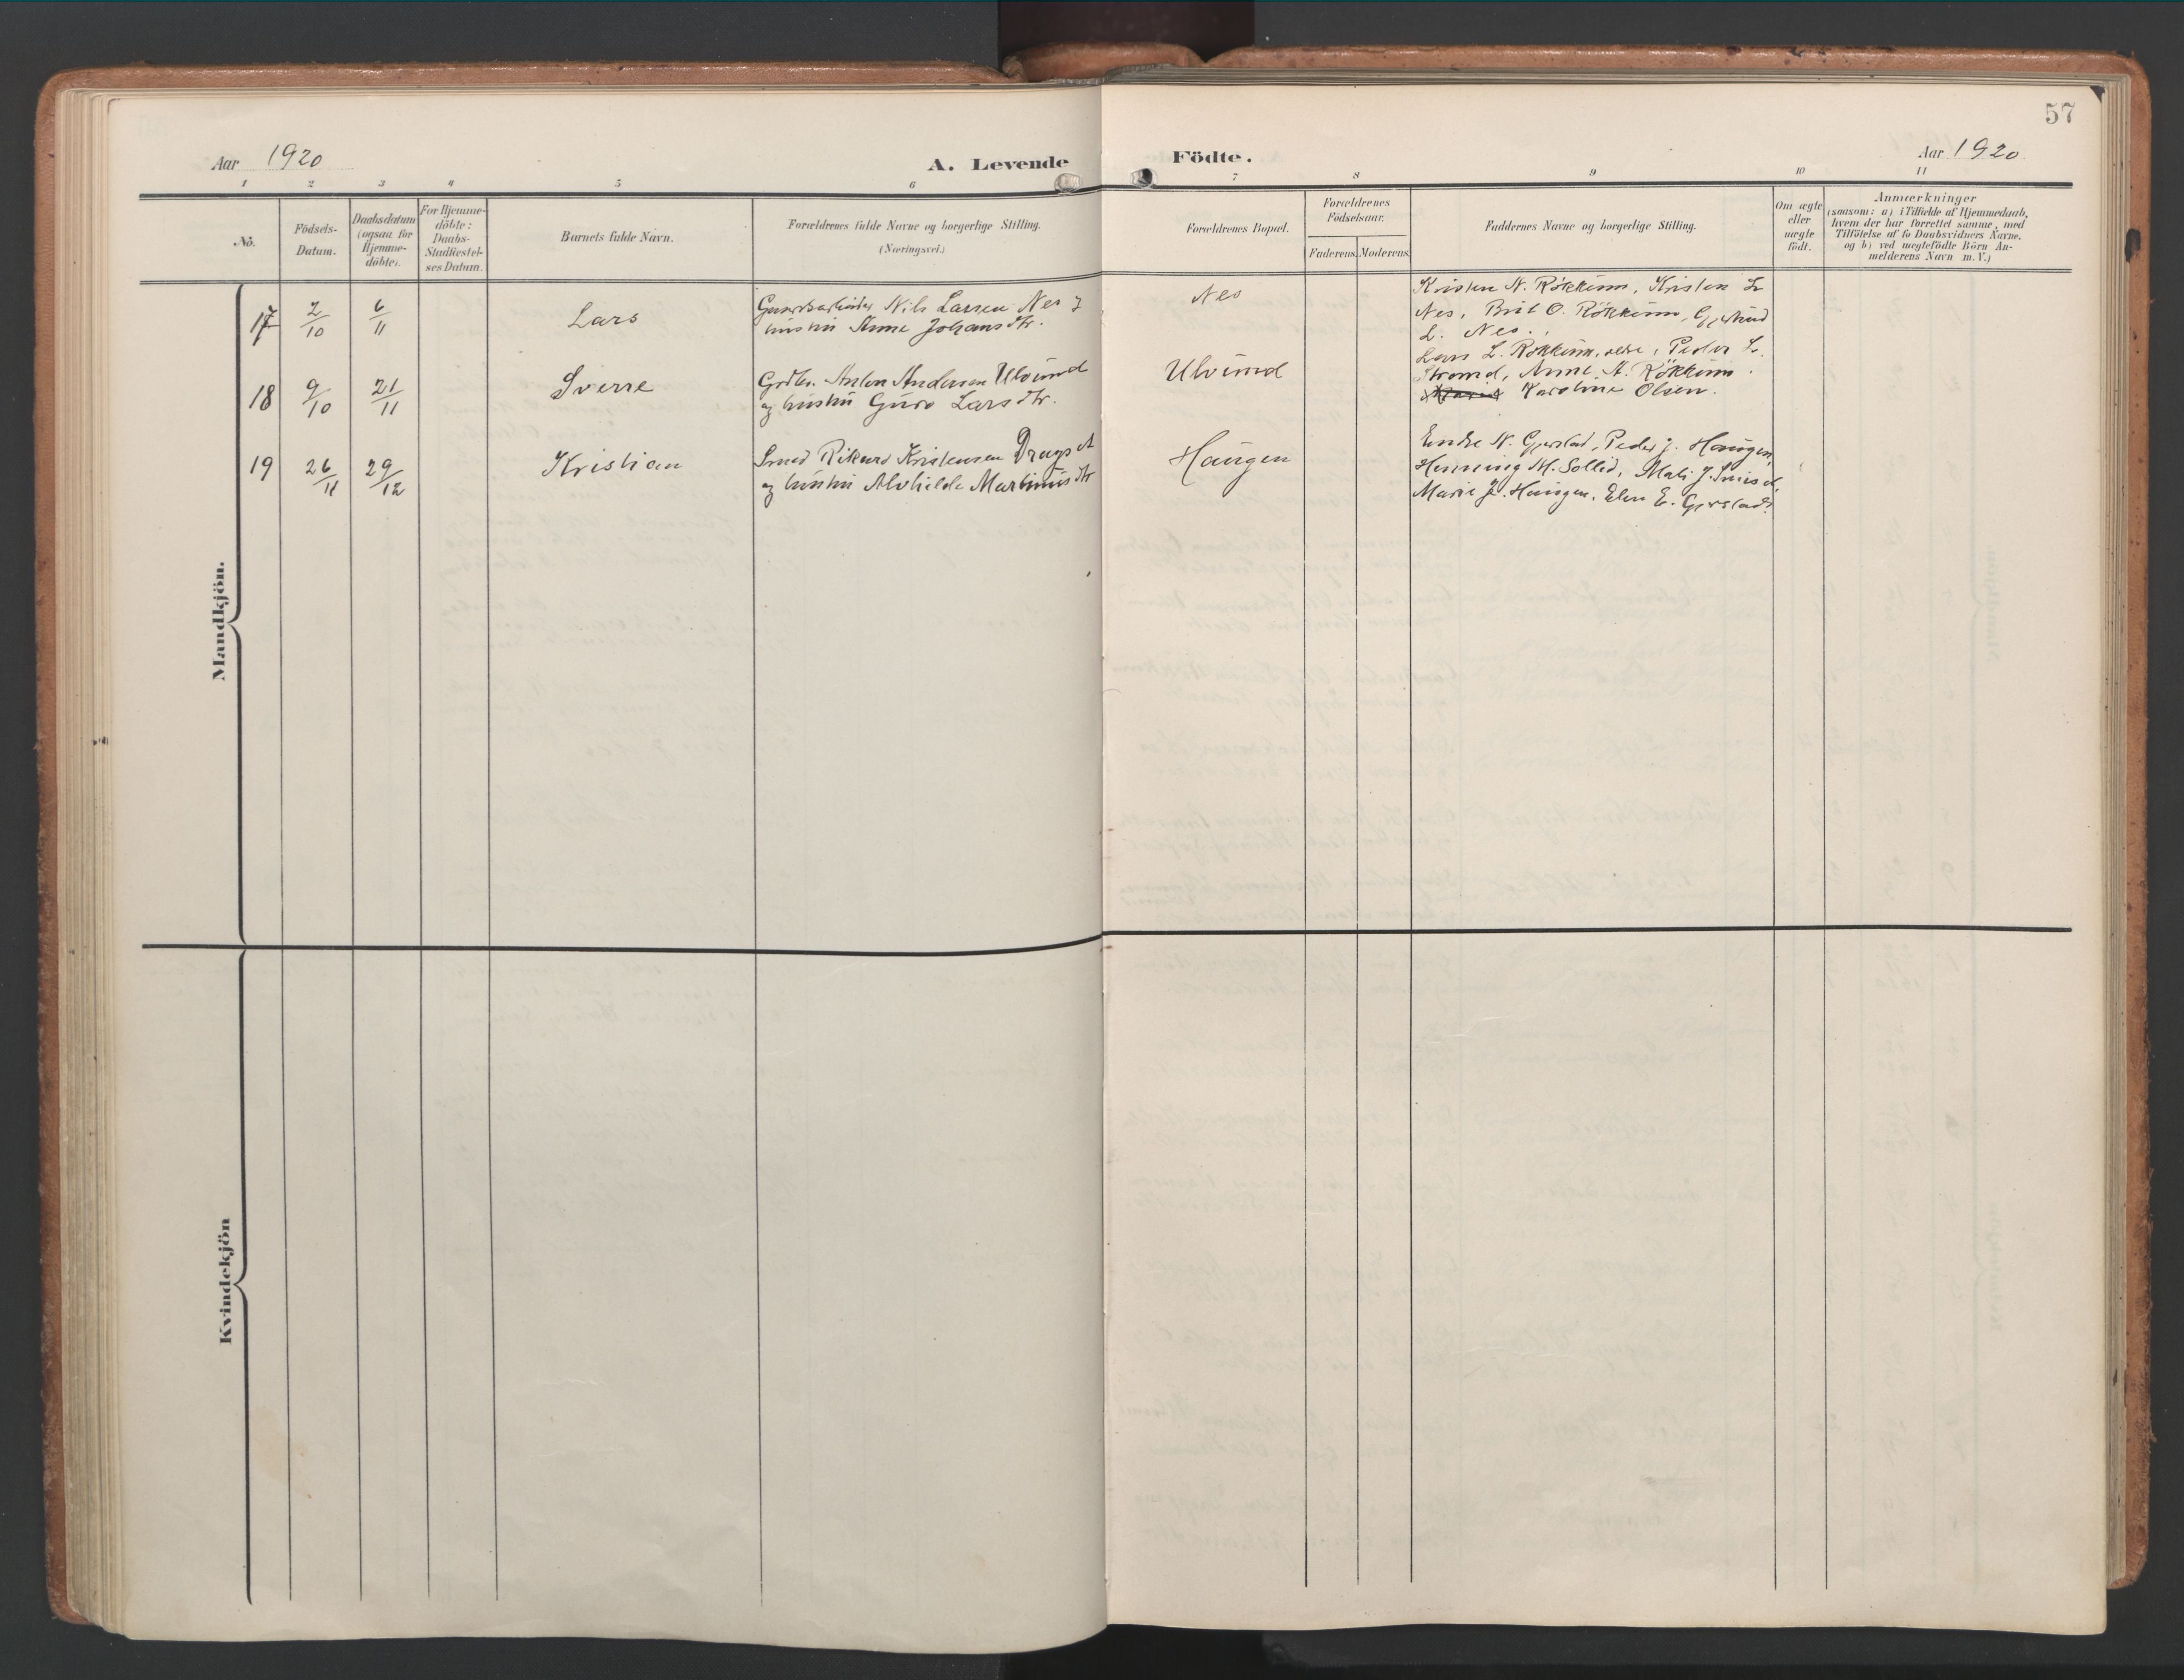 57
Aar 1920
A. Levende Födte.
Aar 1920
1 2 3 4 5 6 7 8 9 10 11
No.
Födsels-
Datum.
Daabsdatum
(ogsaa for
Hjemme-
döbte).
For Hjemme-
döbte:
Daabs-
Stadfæstel-
ses Datum.
Barnets fulde Navn.
Forældrenes fulde Navne og borgerlige Stilling.
(Næringsvei.)
Forældrenes Bopæl.
Forældrenes
Födselsaar.
Faderens. Moderens.
Faddernes Navne og borgerlige Stilling.
Om ægte
eller
uægte
født.
Anmærkninger
(saasom: a) i Tilfælde af Hjemmedaab,
hvem der har forrettet samme, med
Tilföielse af to Daabsvidners Navne.
og b) ved uægtefödte Börn An-
melderens Navn m.V.)
Mandkjön.
17 2/10 6/11 Lars
Gaardsarbeider Nils Larsen Nes
hustru Anne Johansdtr.
Nes
Kristen N. Rökkum, Kristen L.
Nes, Brit O. Rökkum, Gjertrud
L. Nes.
18 9/10 21/11 Sverre
Grdbr. Anton Andersen Ulvund
og hustru Guro Larsdtr.
Ulvund
Lars L. Rökkum, Peder L.
Strand, Anne A. Rökkum.
Karoline Olsen.
19 26/11 29/12 Kristian
Smed Rikard Kristensen Drags
og hustru Alvhilde Martinusdtr
Haugen
Endre N. Gjerstad, Peder J. Haugen,
Henning M. Sollid, Mali J.
Marie J. Haugen, Elen E. Gjerstad.
Kvindekjön